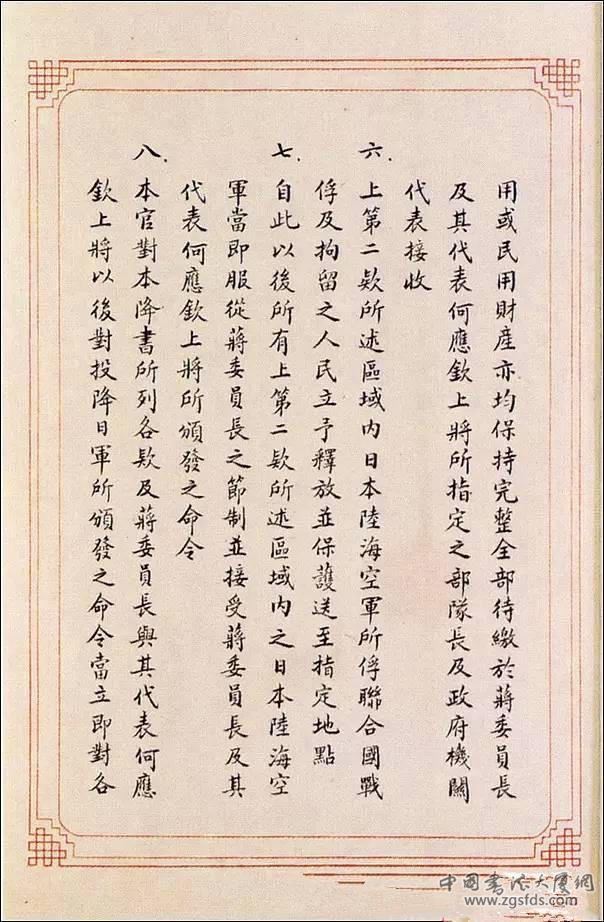 用或民用財產亦均保持完整全部待繳於蔣委員長
及其代表何應欽上將所指定之部隊長及政府機關
代表接收
六.上第二欵所述區域內日本陸海空軍所俘聯合國戰
俘及拘留之人民立予釋放並保護送至指定地點
七.自此以後所有上第二欵所述區域內之日本陸海空
軍當即服從蔣委員長之節制並接受蔣委員長及其
代表何應欽上將所頒發之命令
八.本官對本降書所列各欵及蔣委員長與其代表何應
欽上將以後對投降日軍所頒發之命令當立即對各
中國書法大廈網
www.zgsfds.com